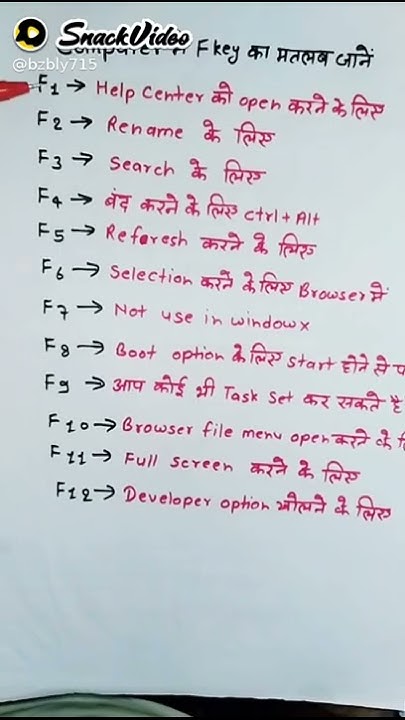 SnackVideo
@bzbly715
Computer में F key का मतलब जानें
F1 → Help Center को open करने के लिए
F2 → Rename के लिए
F3 → Search के लिए
F4 → बंद करने के लिए Ctrl + Alt
F5 → Referesh करने के लिए
F6 → Selection करने के लिए Browser में
F7 → Not use in windowx
F8 → Boot option के लिए start होने से
F9 → आप कोई भी Task Set कर सकते है
F10 → Browser file menu open करने के
F11 → Full screen करने के लिए
F12 → Developer option खोलने के लिए